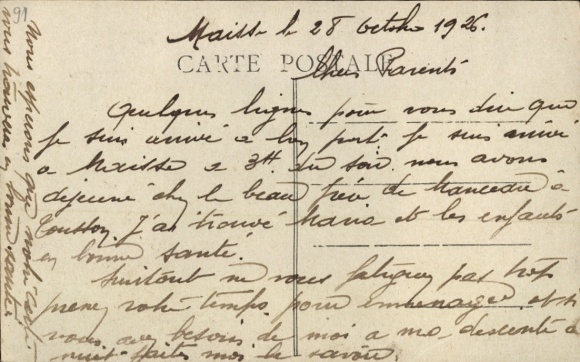 91
Maisse le 28 Octobre 1926.
CARTE POSTALE
Chers Parents
Quelques lignes pour vous dire que
je suis arrivé a bon port. Je suis arrivé
a Maisse a 3H. du soir nous avons
dejeuné chez le beau frère de Manceau à
Tousson J'ai trouvé Maria et les enfants
en bonne santé.
Surtout ne vous fatiguez pas trop
prenez votre temps pour emmenager et si
vous avez besoins de moi a ma descente de
nuit faites moi le savoir
Nous esperons que
vous trouvera en bonne santé